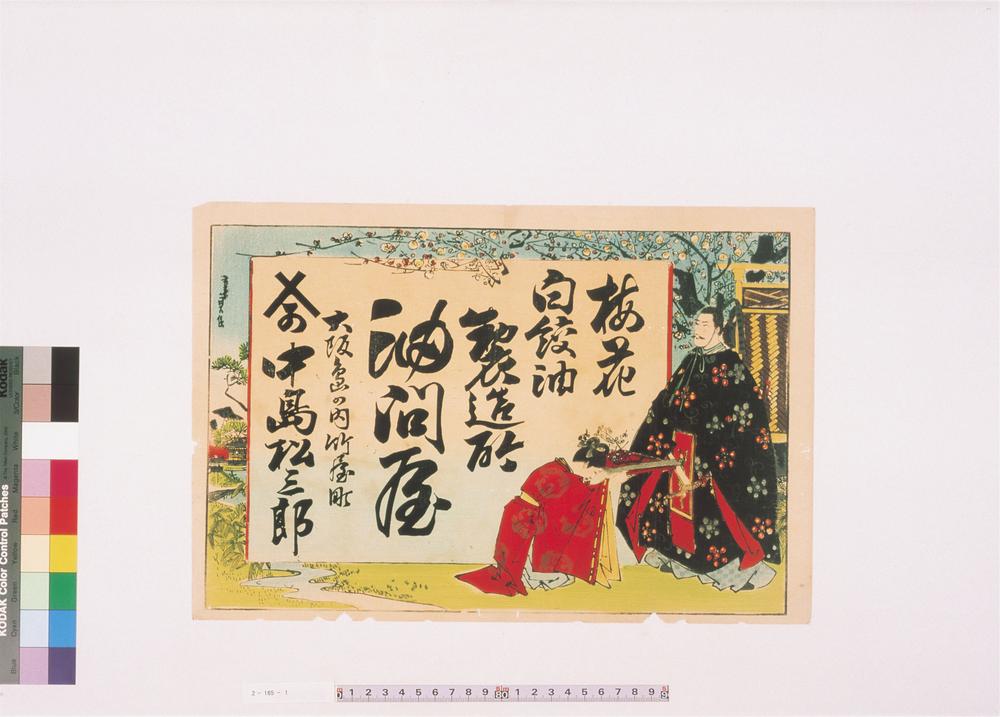 梅花
白絞油
製造所
油問屋
大阪島の内竹屋町
中島松三郎
2-165-1
1 2 3 4 5 6 7 8 9 80 1 2 3 4 5 6 7 8 9
Kodak
KODAK Color Control Patches
Blue Cyan Green Yellow Red Magenta White 3/Color Black